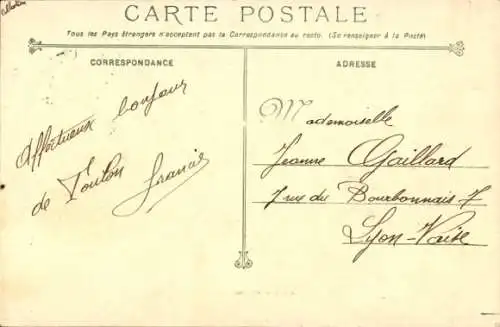 CARTE POSTALE
Tous les Pays étrangers n'acceptent pas la Correspondance au recto. (Se renseigner à la Poste)
CORRESPONDANCE
Affectueux bonjour
de Toulon
Francis
ADRESSE
Mademoiselle
Jeanne Gaillard
7 rue du Bourbonnais 7
Lyon-Vaise